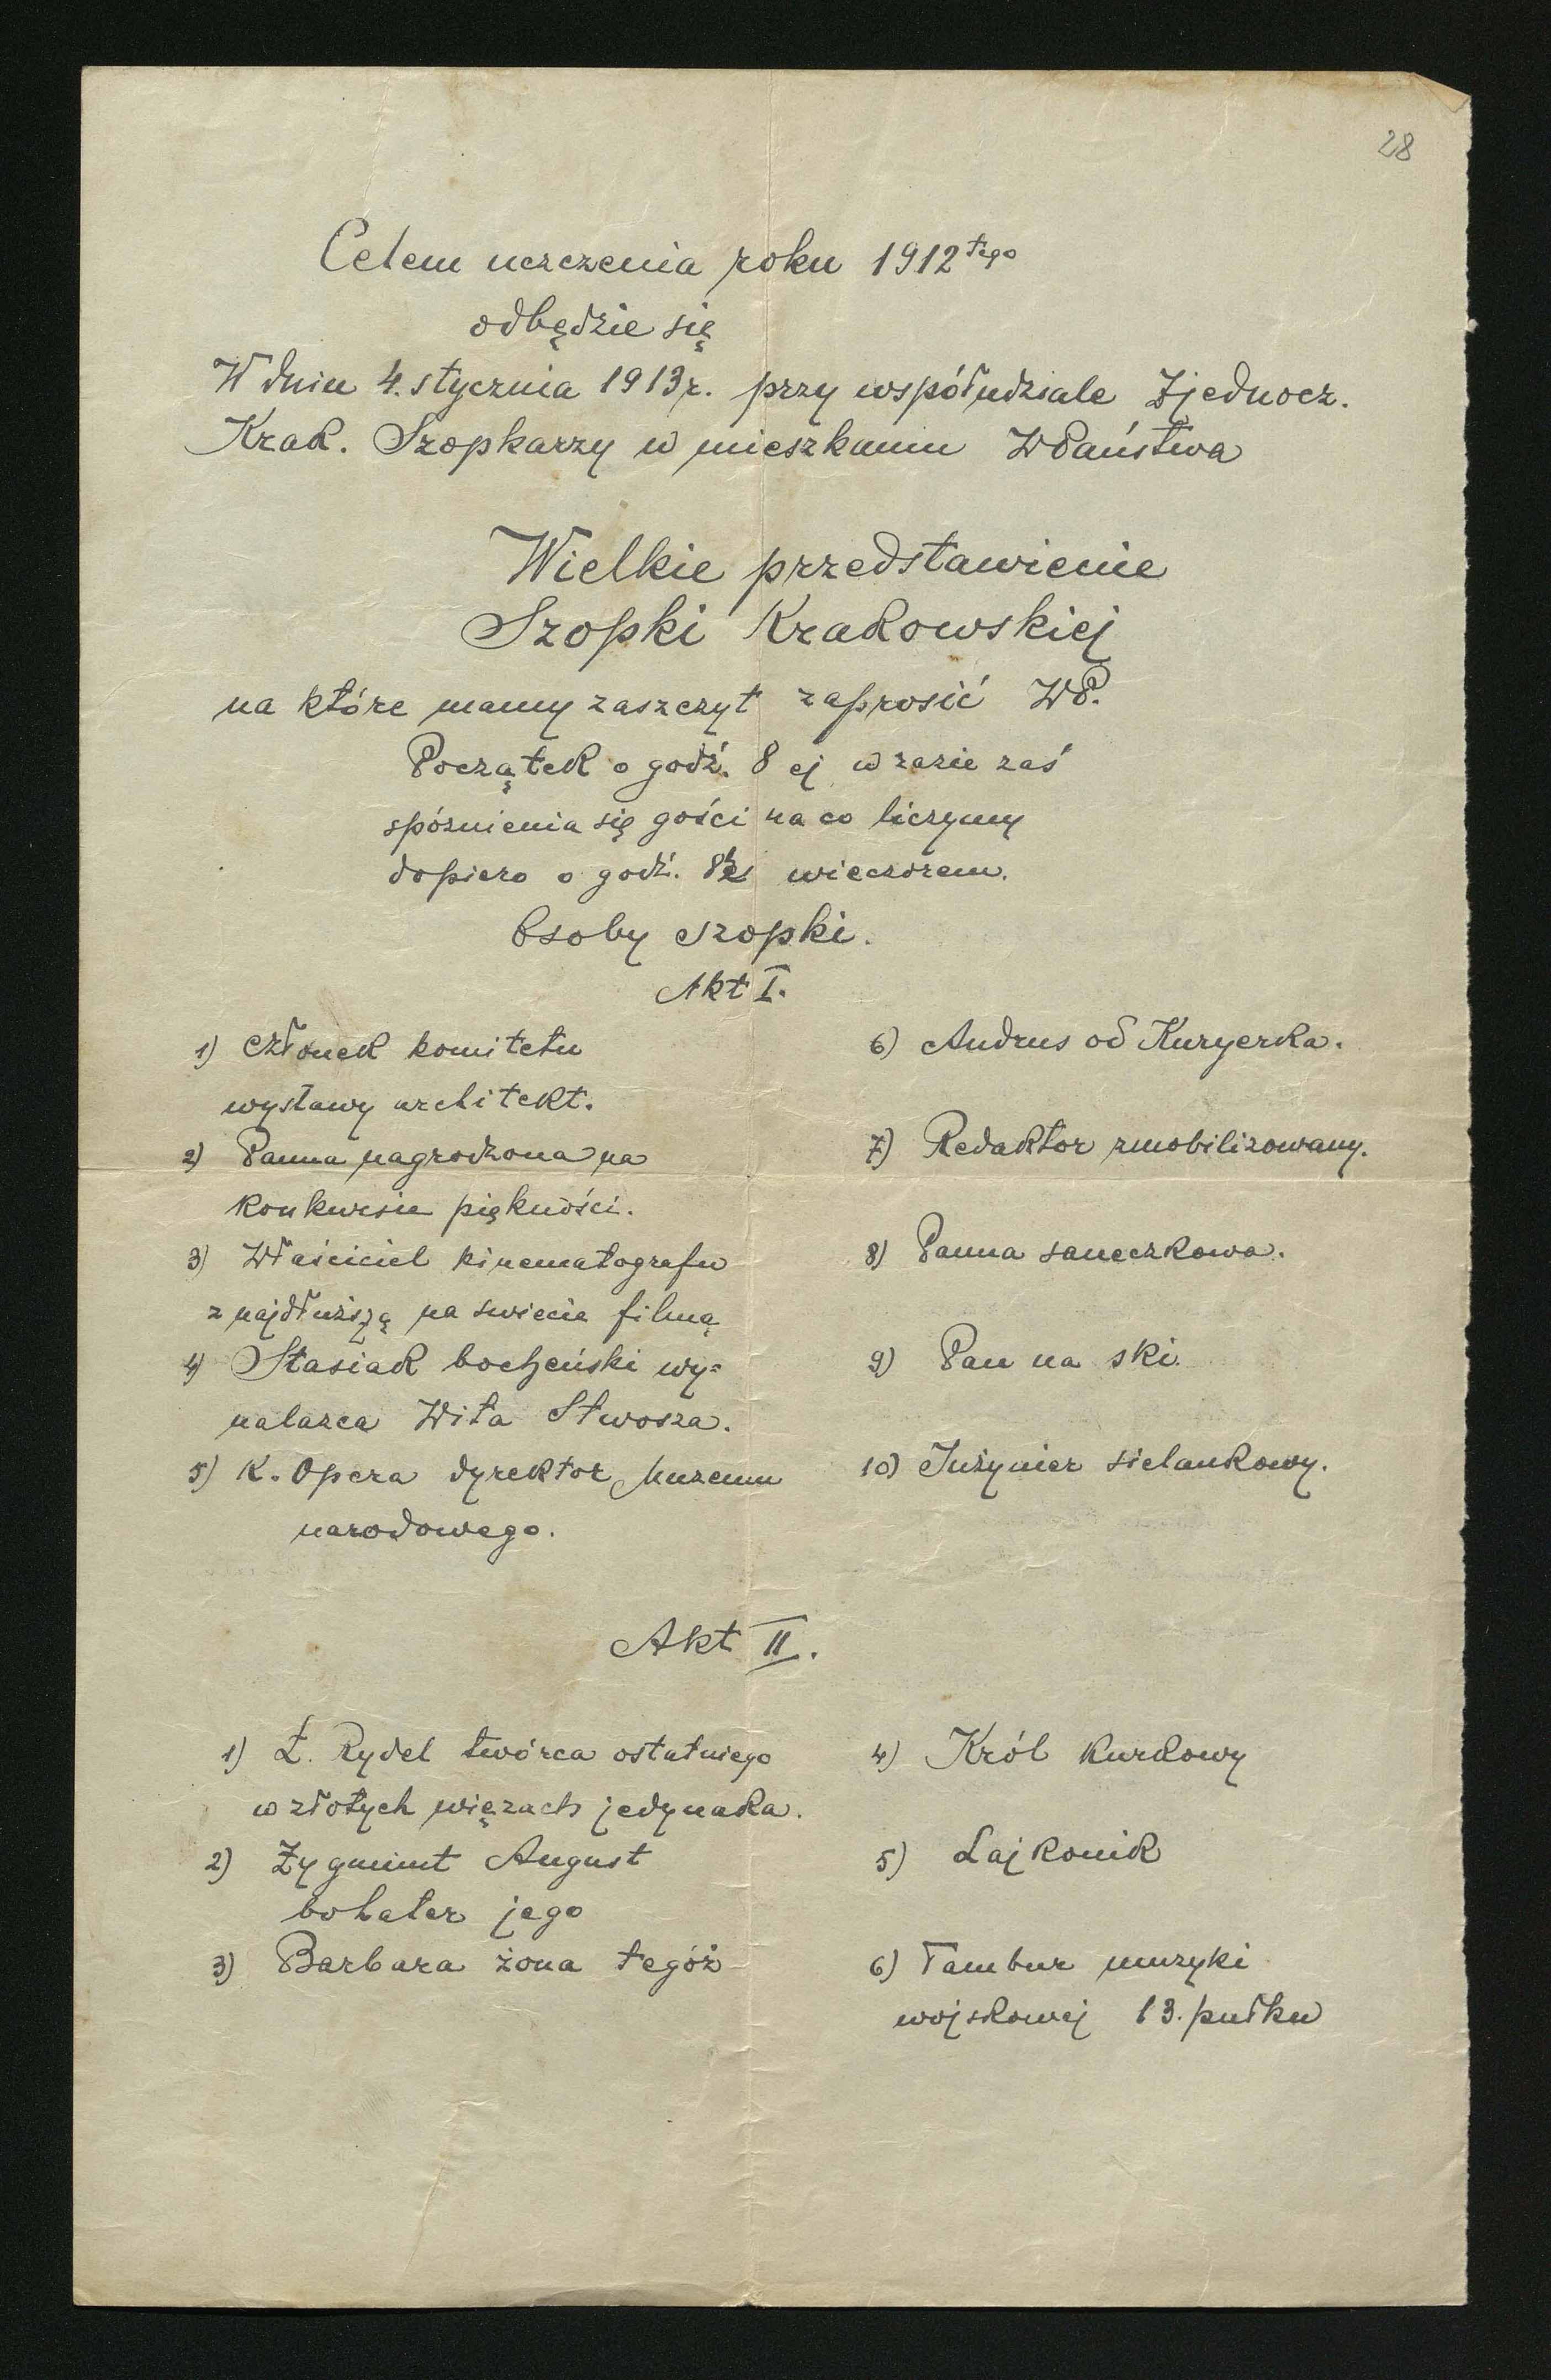 28
Celem uczczenia roku 1912tego
odbędzie się
W dniu 4. stycznia 1913 r. przy współudziale Zjednocz.
Krak. Szopkarzy w mieszkaniu WPaństwa
Wielkie przedstawienie
Szopki Krakowskiej
na które mamy zaszczyt zaprosić WP.
Początek o godź. 8 ej w razie zaś
spóznienia się gości na co liczymy
dopiero o godź. 8½ wieczorem.
Osoby szopki.
Akt I.
1) Członek komitetu
wystawy architekt.
2) Panna nagrodzona na
konkursie piękności.
3) Właściciel kinematografu
z najdłuższą na swiecie filmą
4) Stasiak bocheński wy=
nalazca Wita Stwosza.
5) K. Opera dyrektor Muzeum
narodowego.
6) Andrus od Kuryerka.
7) Redaktor zmobilizowany.
8) Panna saneczkowa.
9) Pan na ski.
10) Inżynier sielankowy.
Akt II.
1) Ł. Rydel twórca ostatniego
w złotych więzach jedynaka.
2) Zygmunt August
bohater jego
3) Barbara żona tegóż
4) Król kurkowy
5) Lajkonik
6) Tambur muzyki
wojskowej 13. pułku